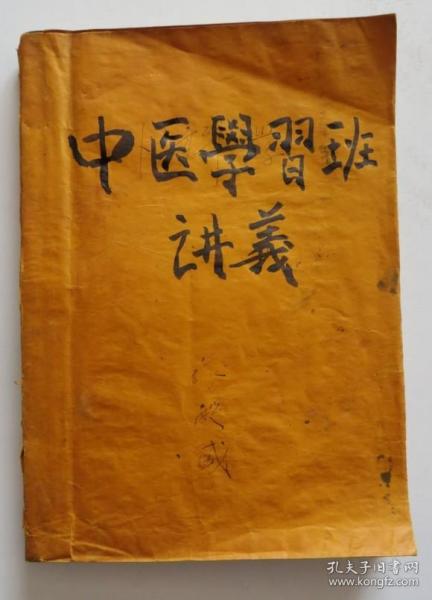 中医學習班
讲義
孔夫子旧书网
www.kongfz.com